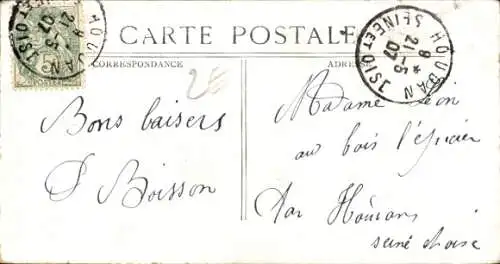 CARTE POSTALE
CORRESPONDANCE
ADRES
HOUDAN
8
21-5
07
SEINE ET OISE
HOUDAN
8
21-5
07
SEINE ET OISE
28
Bons baisers
Boisson
Madame Léon
au bois l'épicier
par Houdan
seine et oise